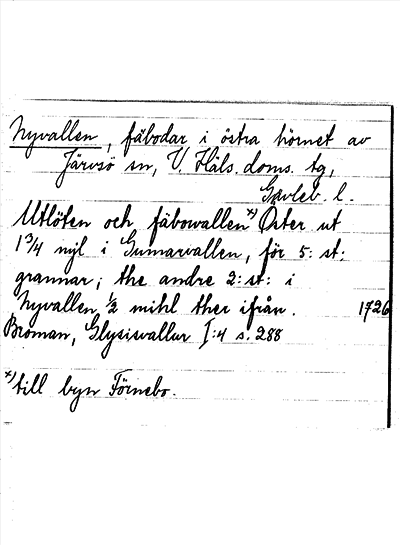 Nyvallen, fäbodar i östra hörnet av
Järvsö sn, V. Häls. doms. tg,
Gävleb. l.
Utlöten och fäbowallen x) Öster ut
1 3/4 mjl i Gumarvallen, för 5: st:
grannar; the andre 2: st: i
Nyvallen 1/2 mihl ther ifrån. 1726
Broman, Glysisvallur I:4 s. 288
x) till byn Förnebo.